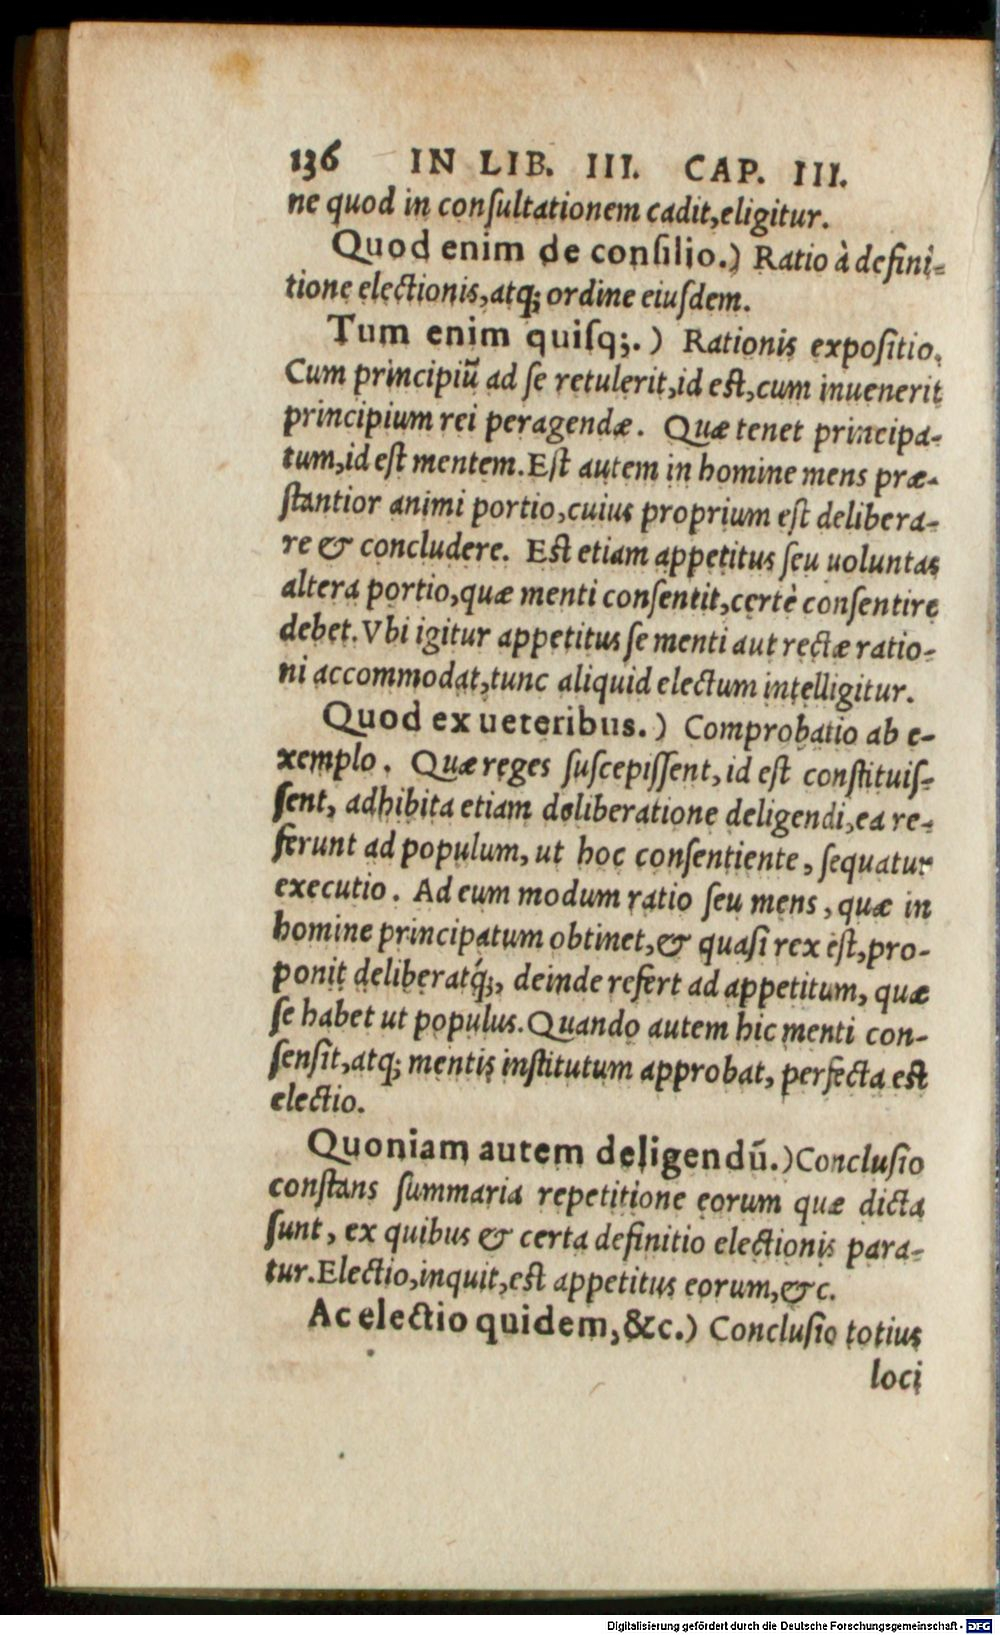 136 IN LIB. III. CAP. III.
ne quod in conſultationem cadit,eligitur.
Quod enim de conſilio.) Ratio à defini-
tione electionis,atq; ordine eiuſdem.
Tum enim quiſq;.) Rationis expoſitio.
Cum principiũ ad ſe retulerit,id eſt,cum inuenerit
principium rei peragendæ. Quæ tenet principa-
tum,id eſt mentem.Eſt autem in homine mens præ-
ſtantior animi portio,cuius proprium eſt delibera-
re & concludere. Eſt etiam appetitus ſeu uoluntas
altera portio,quæ menti conſentit,certè conſentire
debet.Vbi igitur appetitus ſe menti aut rectæ ratio-
ni accommodat,tunc aliquid electum intelligitur.
Quod ex ueteribus.) Comprobatio ab e-
xemplo. Quæ reges ſuſcepiſſent,id eſt conſtituiſ-
ſent, adhibita etiam deliberatione deligendi,ea re-
ferunt ad populum, ut hoc conſentiente, ſequatur
executio. Ad eum modum ratio ſeu mens, quæ in
homine principatum obtinet,& quaſi rex eſt,pro-
ponit deliberatq́;, deinde refert ad appetitum, quæ
ſe habet ut populus.Quando autem hic menti con-
ſenſit,atq; mentis inſtitutum approbat, perfecta eſt
electio.
Quoniam autem deligendũ.)Concluſio
conſtans ſummaria repetitione eorum quæ dicta
ſunt, ex quibus & certa definitio electionis para-
tur.Electio,inquit,eſt appetitus eorum,&c.
Ac electio quidem,&c.) Concluſio totius
loci
Digitalisierung gefördert durch die Deutsche Forschungsgemeinschaft - DFG